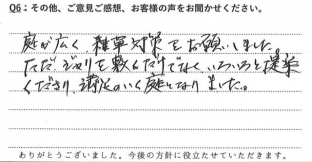 Q6：その他、ご意見ご感想、お客様の声をお聞かせください。
庭が広く、雑草対策をお願いしました。
ただ、ジャリを敷くだけでなく、いろいろと提案
くださり満足のいく庭となりました。
ありがとうございました。今後の方針に役立たせていただきます。